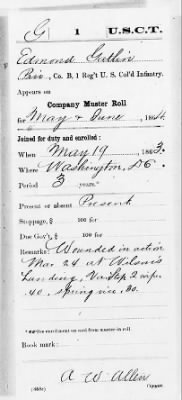 G | 1 | U.S.C.T.
Edmond Gillin
Priv., Co. B, 1 Reg't U. S. Col'd Infantry.
Appears on
Company Muster Roll
for May & June, 1864.
Joined for duty and enrolled:
When May 19, 1863.
Where Washington, D.C.
Period 3 years.*
Present or absent Present
Stoppage, $ 100 for
Due Gov't, $ 100 for
Remarks: Wounded in action
Mar. 24 at Wilson's
Landing, Va.
.40,
*See enrollment on card from muster-in roll.
Book mark:
A W Allen
Copyist.